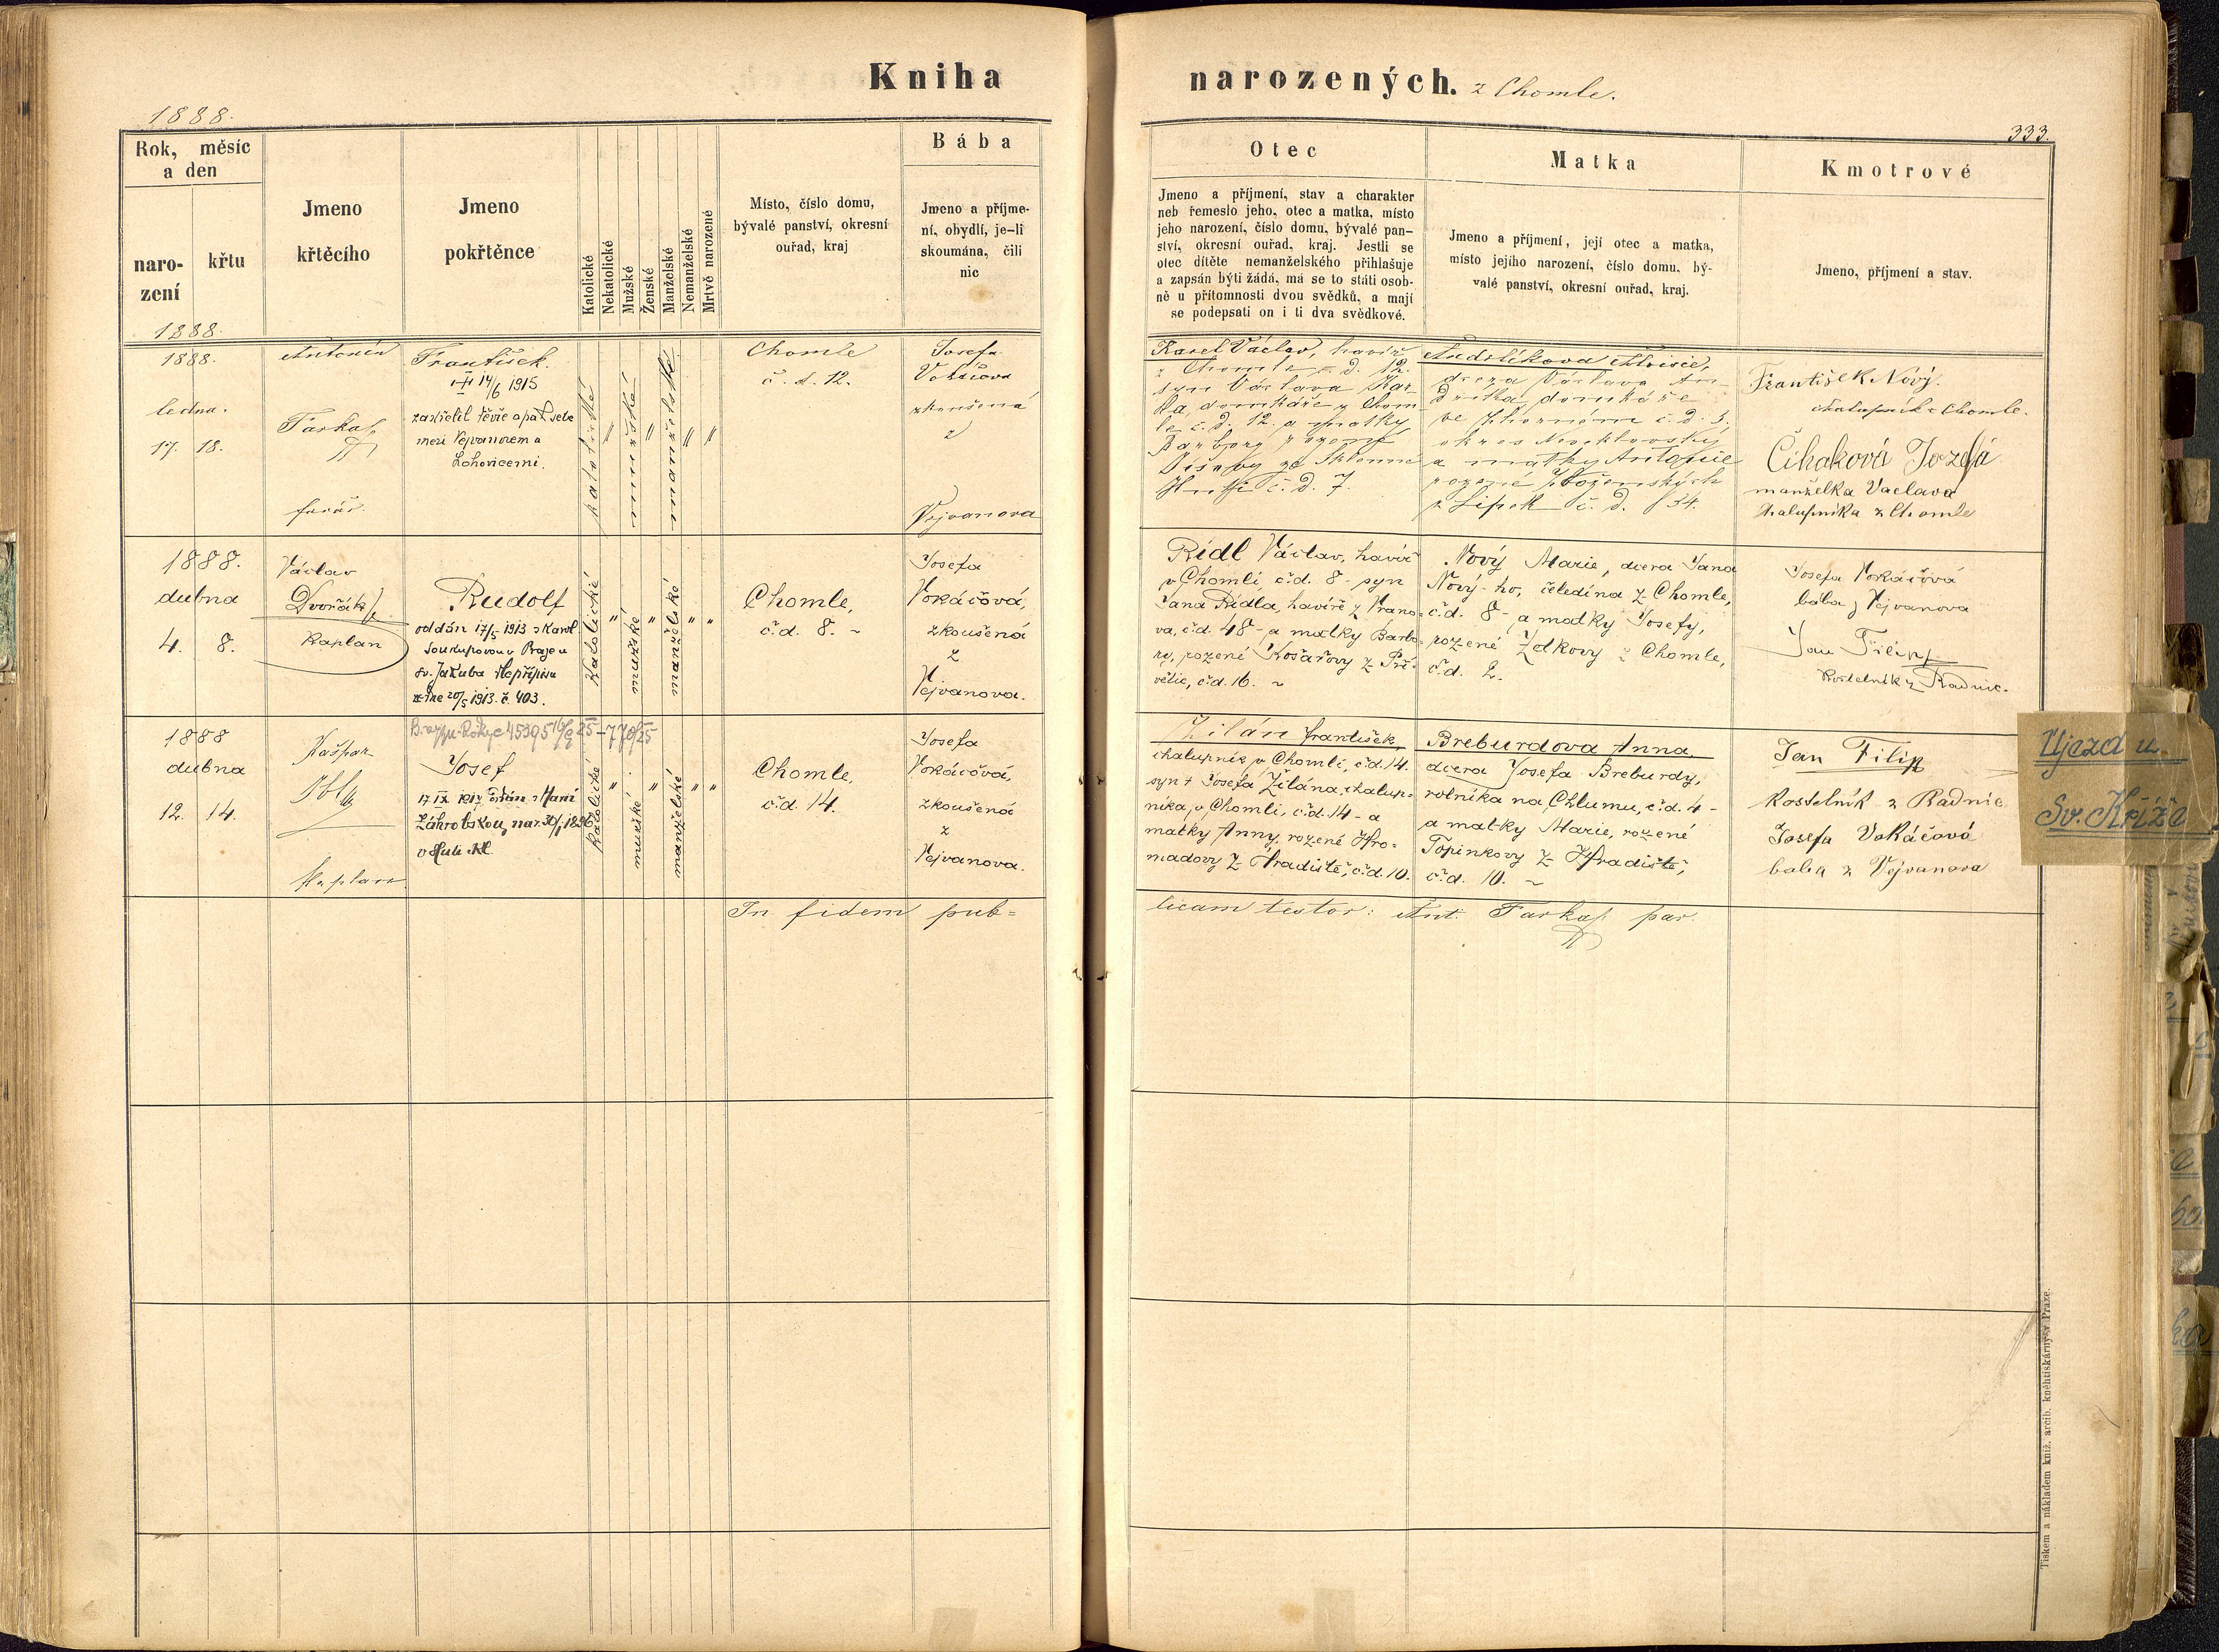 Kniha narozených. z Chomle.
1888.
333.
Rok, měsíc
a den
naro-
zení
křtu
Jmeno
křtěcího
Jmeno
pokřtěnce
Katolické
Nekatolické
Mužské
Ženské
Manželské
Nemanželské
Mrtvě narozené
Místo, číslo domu,
bývalé panství, okresní
ouřad, kraj
Bába
Jmeno a příjme-
ní, obydlí, je-li
skoumána, čili
nic
Otec
Jmeno a příjmení, stav a charakter
neb řemeslo jeho, otec a matka, místo
jeho narození, číslo domu, bývalé pan-
ství, okresní ouřad, kraj. Jestli se
otec dítěte nemanželského přihlašuje
a zapsán býti žádá, má se to státi osob-
ně u přítomnosti dvou svědků, a mají
se podepsati on i ti dva svědkové.
Matka
Jmeno a příjmení, její otec a matka,
místo jejího narození, číslo domu, bý-
valé panství, okresní ouřad, kraj.
Kmotrové
Jmeno, příjmení a stav.
1888.
1888.
ledna.
17. 18.
Antonín
farář.
František.
14/6 1915
mezi Vejvanovem a
Lohovicemi.
katolické
"
mužské
"
manželské
"
"
Chomle
č. d. 12.
Josefa
zkoušená
z
Vejvanova
Karel Václav, havíř
z Chomle č. d. 12.
syn Václava Kar-
la, domkáře z Chom
le č. d. 12. a matky
Barbory rozené
Hutě č. d. 7.
dcera Václava An-
drlíka, domkáře
č. d. 3.
okres
a matky Antonie
rozené
z Lipek č. d. 34.
František Nový.
chalupník z Chomle.
Čihaková Jozefa
manželka Vaclava
chalupníka z Chomle
1888.
dubna
4. 8.
Václav
Dvořák
Kaplan
Rudolf
oddán 17/5 1913 s Karol.
Soukupovou v Praze u
sv. Jakuba
ze dne 20/5 1913 č. 403.
Katolické
"
mužské
"
manželské
"
"
Chomle,
č.d. 8. ~
Josefa
Vokáčová,
zkoušená
z
Vejvanova.
Rídl Václav, havíř
v Chomli č.d. 8 - syn
Jana Rídla, havíře z Vrano-
va, č.d. 48 - a matky Barbo-
ry, rozené Kosařovy z Při-
větic, č.d. 16. ~
Nový Marie, dcera Jana
Nový-ho, čeledína z Chomle,
č.d. 8 - a matky Josefy,
rozené Zelkovy z Chomle,
č.d. 2.
Josefa Vokáčová
bába z Vejvanova
Jan Filip
Kostelník z Radnic.
1888
dubna
12. 14.
Kašpar
Kaplan.
Josef
17 IX 1917 oddán s Marií
Záhrobskou, nar. 30/1 1896
Katolické
"
mužské
"
manželské
"
"
Chomle,
č.d. 14.
Josefa
Vokáčová,
zkoušená
z
Vejvanova.
Žilán František,
chalupník v Chomli, č.d. 14.
syn + Josefa Žilána, chalup-
níka, v Chomli, č.d. 14 - a
matky Anny, rozené Hro-
madovy z Hradiště, č.d. 10.
Breburdova Anna,
dcera Josefa Breburdy,
rolníka na Chlumu, č.d. 4 -
a matky Marie, rozené
Topinkovy z Hradiště,
č.d. 10. ~
Jan Filip
Kostelník z Radnic
Josefa Vokáčová
baba z Vejvanova
In fidem pub=
licam testor: Ant. Farkač par.
Ujezd u
Sv. Kříže
Tiskem a nákladem kníž. arcib. kněhtiskárny v Praze.